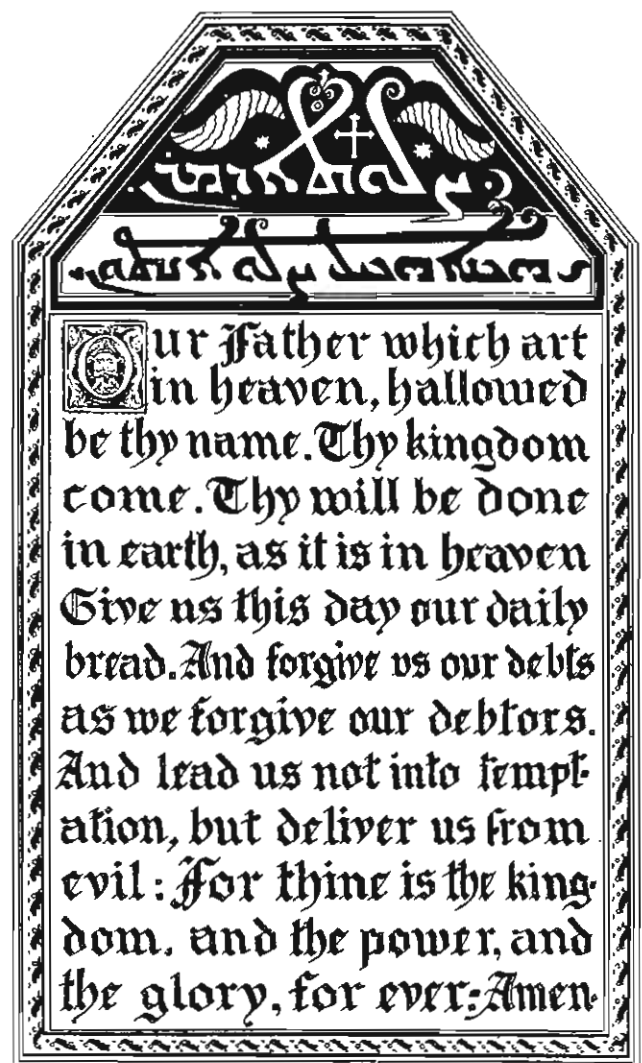 Our Father which art
in heaven, hallowed
be thy name. Thy kingdom
come. Thy will be done
in earth, as it is in heaven
Give us this day our daily
bread. And forgive us our debts
as we forgive our debtors.
And lead us not into tempt-
ation, but deliver us from
evil: For thine is the king-
dom, and the power, and
the glory, for ever: Amen.